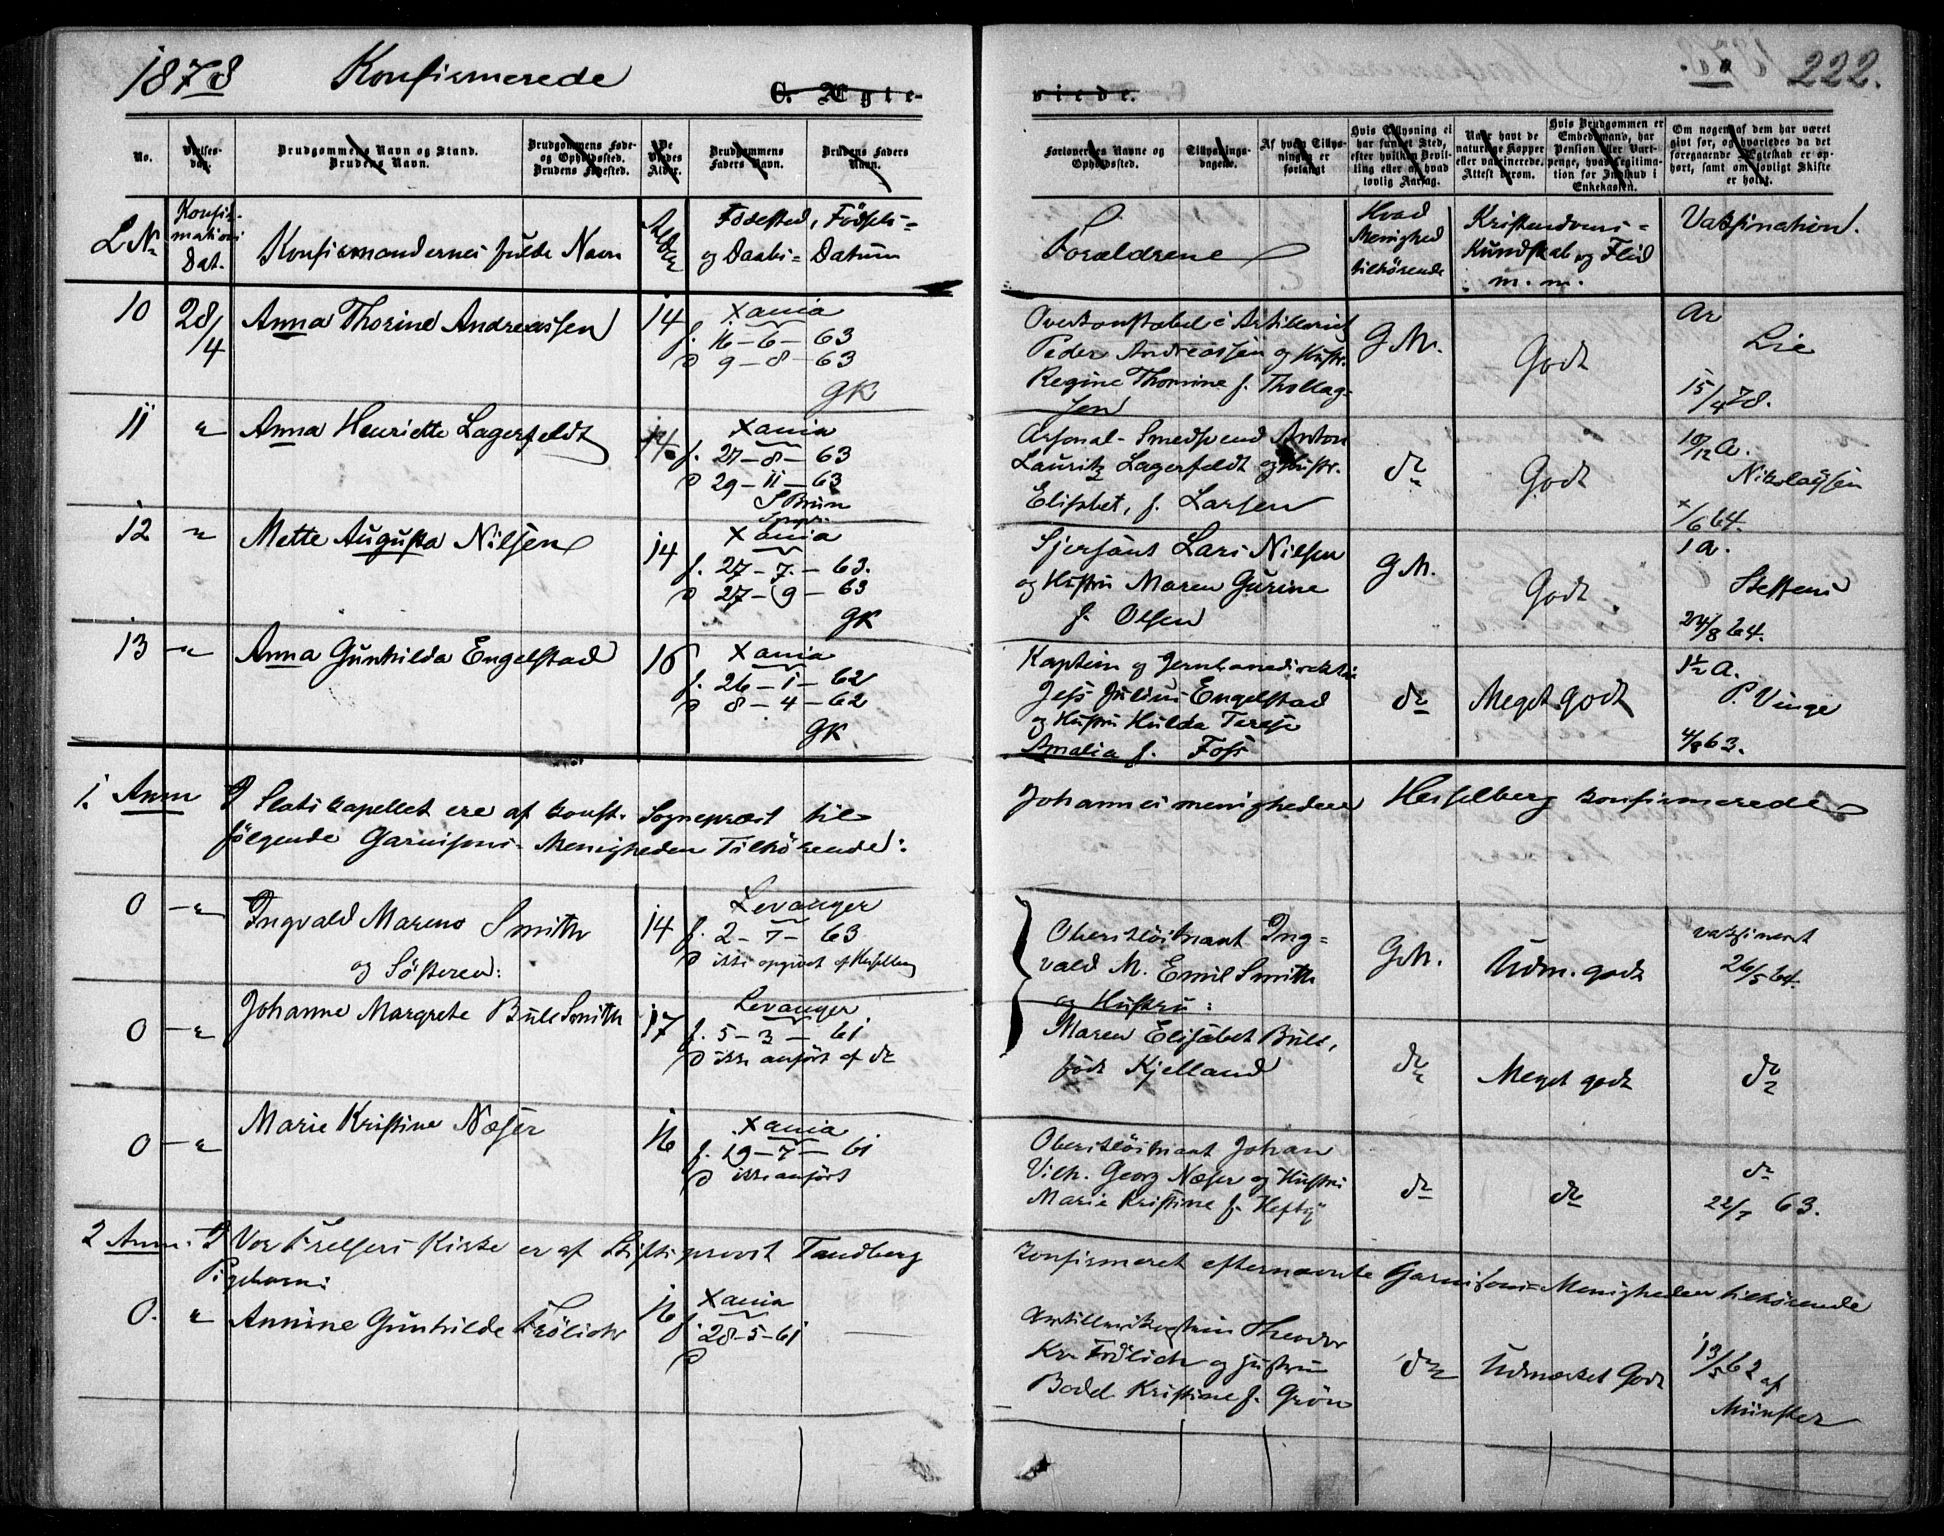 1878 Konfirmerede
C. Ægteviede.
222.
No.
Vielsesdag.
Brudgommens Navn og Stand.
Brudens Navn.
Brudgommens Føde- og Opholdssted.
Brudens Fødested.
De Viedes Alder.
Brudgommens Faders Navn.
Brudens Faders Navn.
Forlovernes Navne og Opholdssted.
Tillysningsdagene.
Af hvem Tillysningen er forlangt
Hvis Tillysning ei har fundet Sted, efter hvilken Bevilling eller af hvad lovlig Aarsag.
Naar havt de naturlige Kopper eller vaccinerede. Attest derom.
Hvis Brudgommen er Embedsmand, har Pension eller Vartpenge, hvad Legitimation for Indskud i Enkekassen.
Om nogen af dem har været gift før, og hvorledes da det foregaaende Ægteskab er ophørt, samt om lovligt Skifte er holdt.
L No
Konfirmations Dat.
Konfirmandernes fulde Navn
Alder
Fødested, Fødsels-
og Daabs-Datum
Forældrene
Hvad Menighed tilhørende
Kristendoms-
Kundskab og Flid
m. m.
Vaksination.
10 28/4 Anna Thorine Andreassen 14 Xania
f. 16-6-63
d 9-8-63
GK
Overkonstabel i Artilleriet
Peder Andreassen og Hustr.
Regine Thomine f. Thollag-
sen
G M. Godt
Ar
Lie
15/4 78.
11 " Anna Henriette Lagerfeldt 14 Xania
f. 27-8-63
d 29-11-63
S Brun
Arsenal-Smedsvend Anton
Lauritz Lagerfeldt og Hustr.
Elisabet, f. Larsen
do Godt
10/12 A.
Nikolaysen
/6 64.
12 " Mette Augusta Nilsen 14 Xania
f. 27-7-63.
d 27-9-63
GK
Sjersant Lars Nilsen
og Hustru Maren Gurine
f. Olsen
G M. Godt
1 A.
Steffens
24/8 64.
13 " Anna Gunhilda Engelstad 16 Xania
f. 26-1-62
d 8-4-62
GK
Kaptein og Jernbanedirektør
Jess Julius Engelstad
og Hustru Hulda Terese
Amalia f. Foss
do Meget godt
1½ A.
P. Vinge
4/8 63.
1. Anm I Slotskapellet ere af konst. Sogneprest til Johannesmenigheden Hesselberg konfirmerede
følgende Garnisons-Menigheden Tilhørende:
0 " Ingvald Mareno Smith 14 Levanger
og Søsteren:
f. 2-7-63
d ikke opgivet af Hesselberg
Oberstløitnant Ing-
vald M. Emil Smith
og Hustru:
G M. Udm. godt
vaksineret
26/5 64.
0 " Johanne Margrete Bull Smith 17 Levanger
f. 5-3-61
d ikke anført af do
Maren Elisabet Bull,
født Kjelland
do Meget godt
do
0 " Marie Kristine Næser 16 Xania
f. 19-7-61
d ikke anført
Oberstløitnant Johan
Vilh. Georg Næser og Hustru
Marie Kristine f. Heftÿ
do do
do
22/7 63.
2 Anm. I Vor Frelsers Kirke er af Stiftsprovst Tandberg konfirmeret efternævnte Garnisons-Menigheden tilhørende
Pigebarn:
0. " Annine Gunhilde Frölich 16 Xania
f. 28-5-61
d
Artillerikaptein Theodor
Kr. Frölich og Hustru
Bodel Kristine f. Grön
do Udmærket Godt
13/5 62 af
Münster